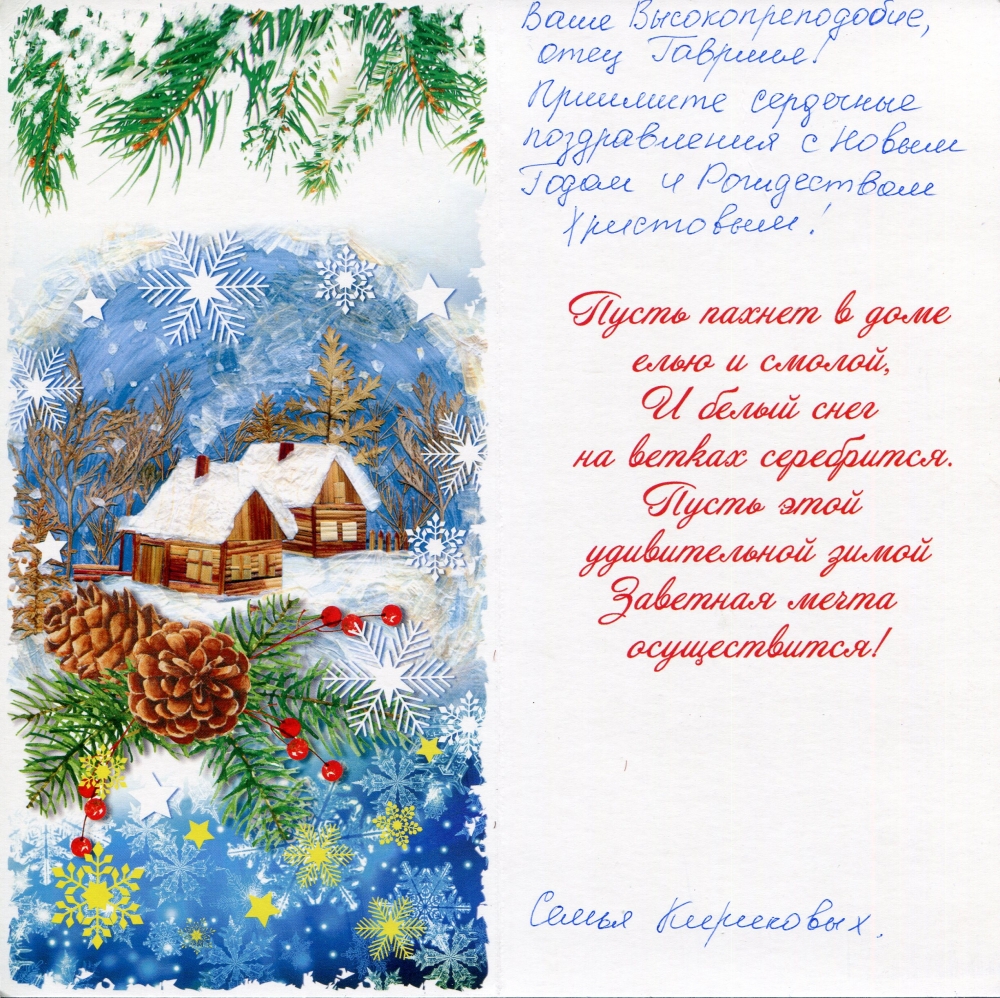 Ваше Высокопреподобие,
отец Гавриил!
Примите сердечные
поздравления с Новым
Годом и Рождеством
Христовым!
Пусть пахнет в доме
елью и смолой,
И белый снег
на ветках серебрится.
Пусть этой
удивительной зимой
Заветная мечта
осуществится!
Семья Кириковых.